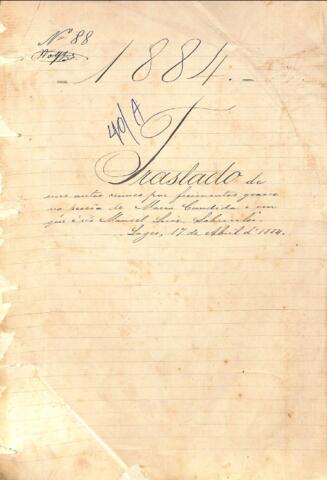 Nº 88
- 1884. -
40/A
Traslado de
uns autos crimes por ferimentos graves
na pessôa de Maria Candida e em
que é réo Manoel Luis
Lages, 17 de Abril d' 1884.